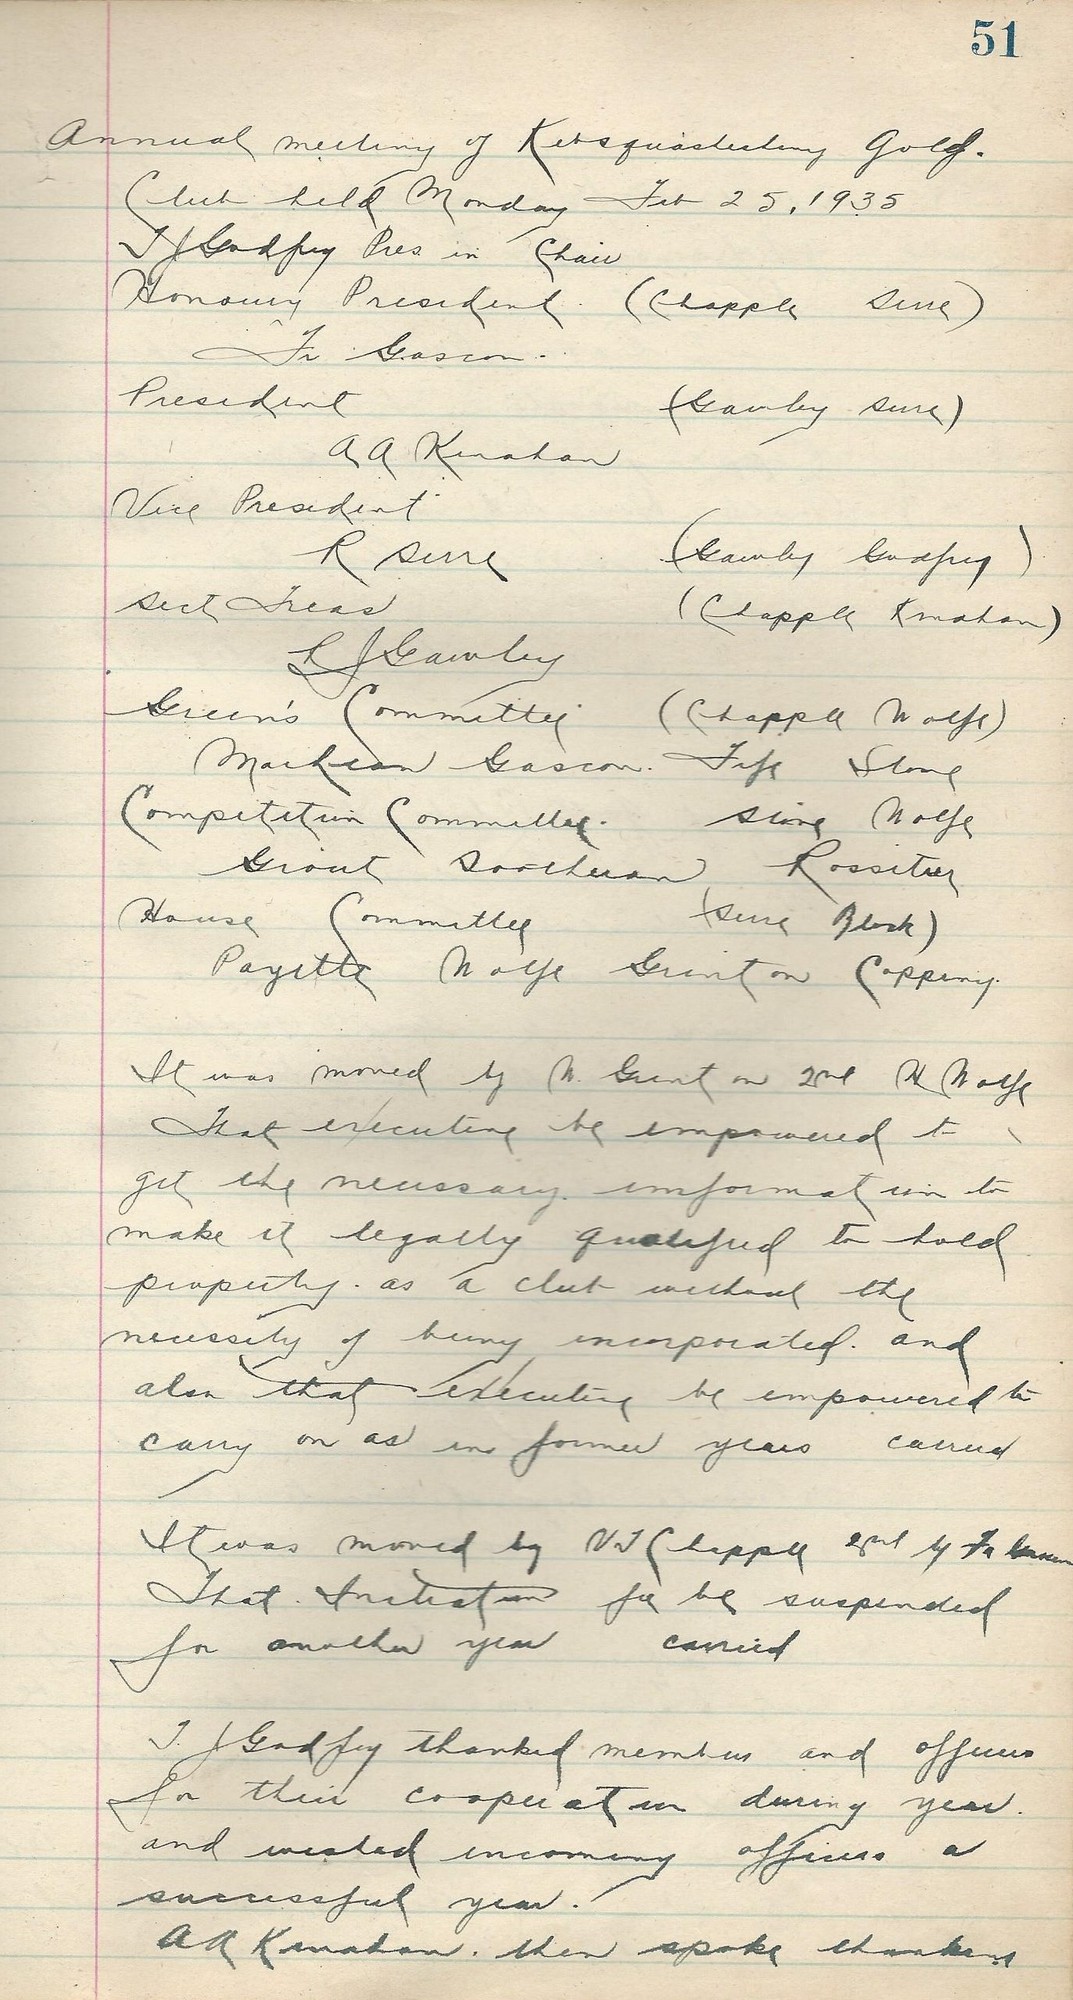 51
Annual meeting of Golf.
Club held Monday Feb 25, 1935
T J Godfrey Pres. in Chair
Honoury President. (Chapple Serre)
Fr Gascon.
President (Gawley Serre)
A A Kinahan
Vice President
R Serre (Gawley Godfrey)
Sect Treas (Chapple Kinahan)
L J Gawley
Green's Committee (Chapple Wolfe)
Gascon. Fife Stone
Competition Committee. Wolfe
Grout Rossiter
House Committee (Serre Black)
Payette Wolfe Grinton Copping.
It was moved by W. Grinton 2nd H Wolfe
That executive be empowered to
get the necessary information to
make it legally qualified to hold
property. as a club without the
necessity of being incorporated. and
also that executive be empowered to
carry on as in former years carried
It was moved by V J Chapple 2nd by Fr Gascon
That. Initiation fee be suspended
for another year carried
T. J Godfrey thanked members and officers
for their cooperation during year.
and wished incoming officers a
successful year.
A A Kinahan. then spoke thanking